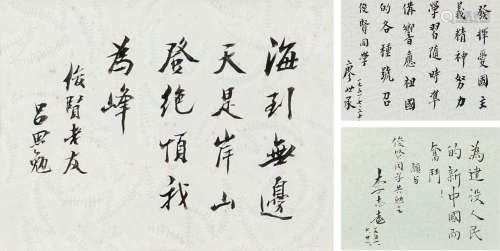 海到無邊
天是岸山
登絕頂我
為峰
俊賢老友
呂思勉
發揮愛國主
義精神努力
學習隨時準
備響應祖國
的各種號召
俊賢同學
廖世承
為建設人民
的新中國而
奮鬥！
願與
俊賢同學共勉之